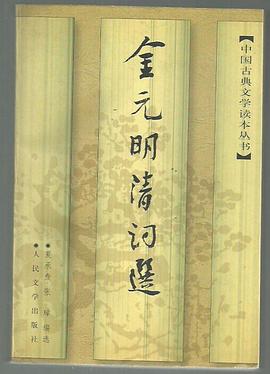 【中国古典文学读本丛书】
金元明清词選
●夏承焘 张璋 编选
●人民文学出版社